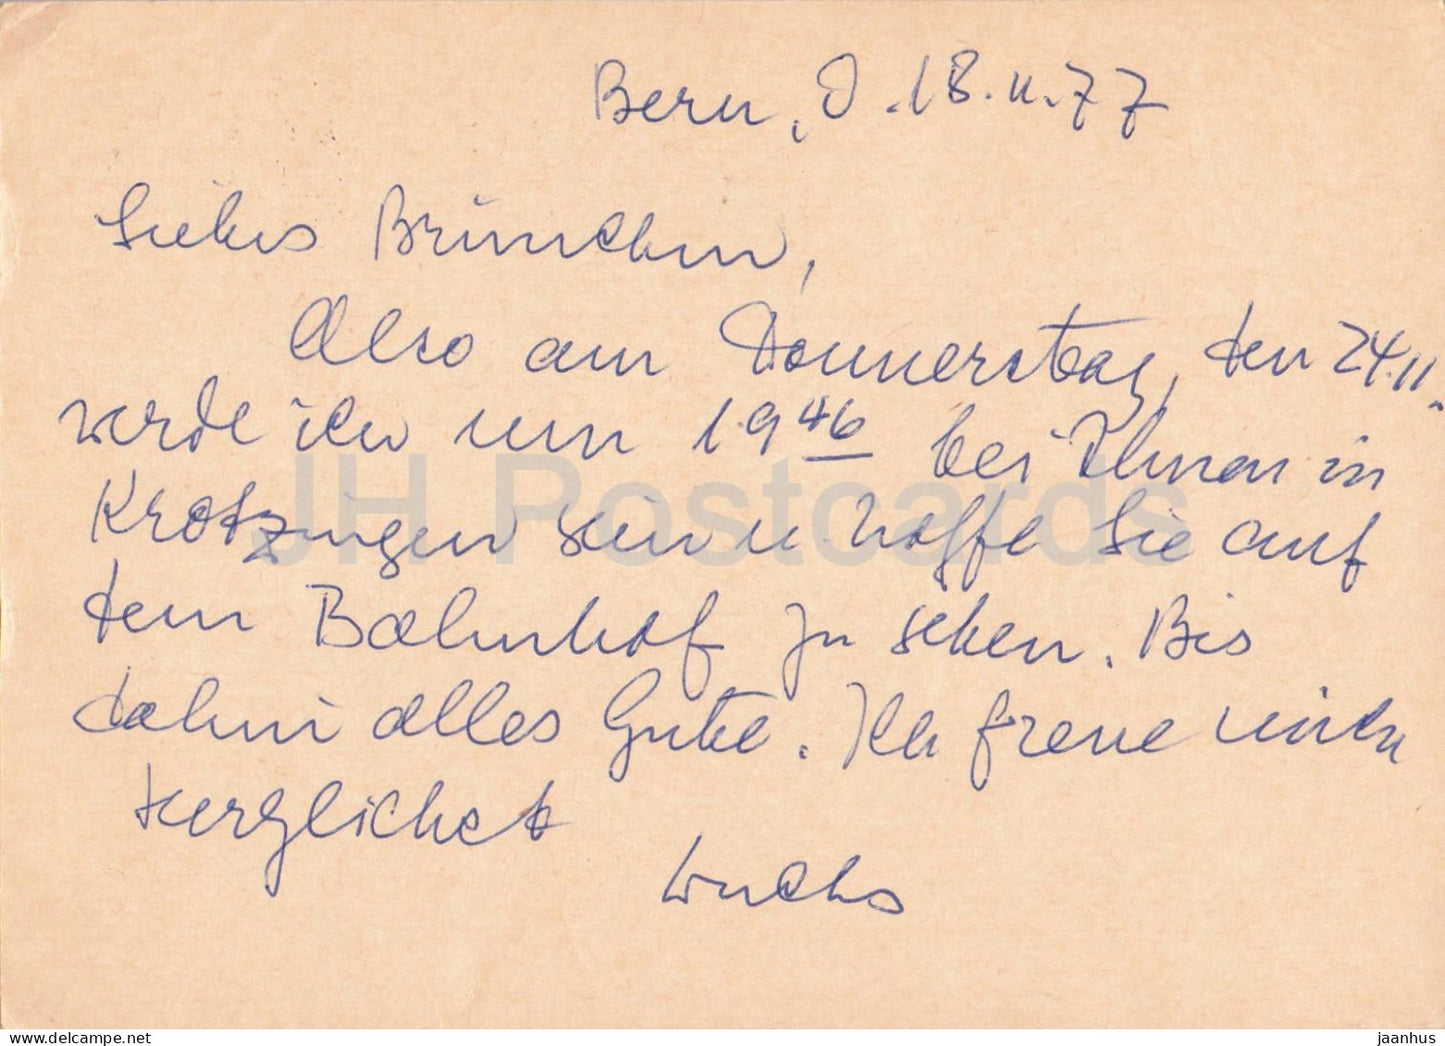 Bern, D. 18.11.77
Liebes Brünchen,
Also am Donnerstag, den 24.11.
werde ich um 19 46 bei Ihnen in
Krotzingen sein u. hoffe Sie auf
dem Bahnhof zu sehen. Bis
dahin alles Gute. Ich freue mich
herzlichst
JH Postcards
jaanhus
delcampe.net